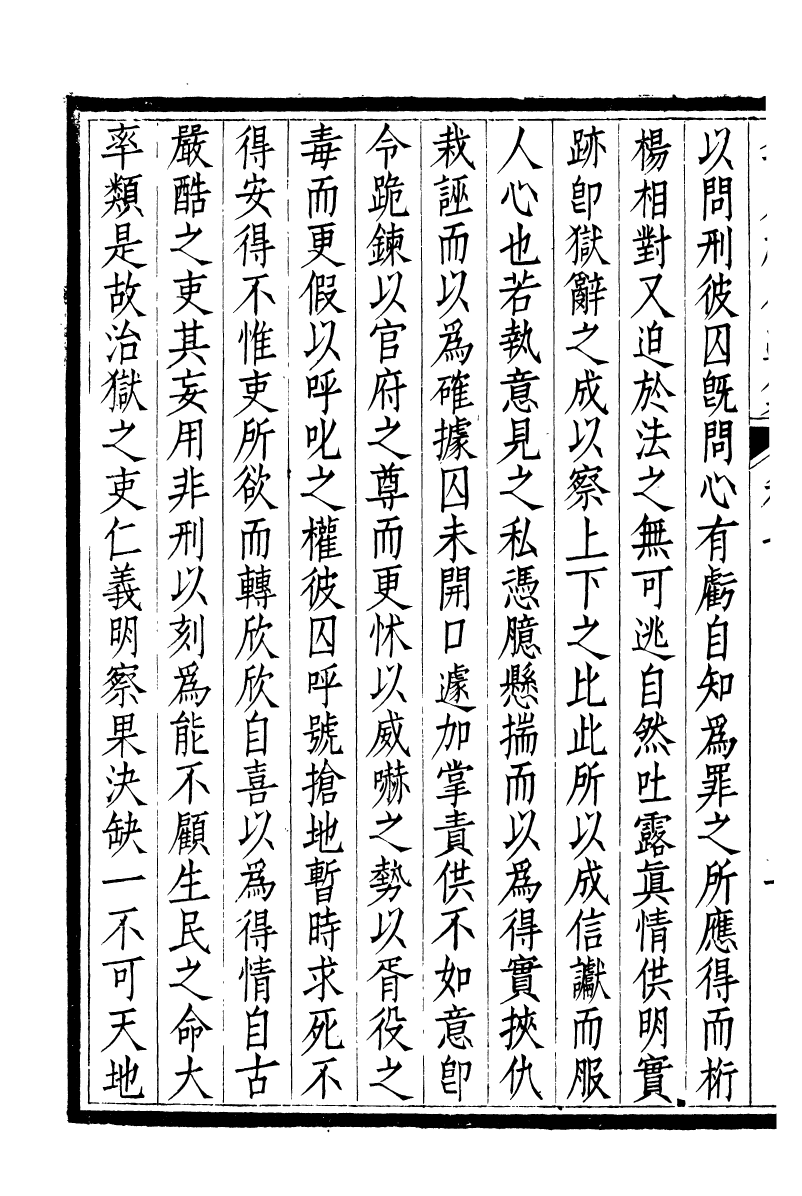 以問刑彼囚旣問心有虧自知爲罪之所應得而桁
楊相對又迫於法之無可逃自然吐露眞情供明實
跡卽獄辭之成以察上下之比此所以成信讞而服
人心也若執意見之私憑臆懸揣而以爲得實挾仇
栽誣而以爲確據囚未開口遽加掌責供不如意卽
令跪鍊以官府之尊而更怵以威嚇之勢以胥役之
毒而更假以呼叱之權彼囚呼號搶地暫時求死不
得安得不惟吏所欲而轉欣欣自喜以爲得情自古
嚴酷之吏其妄用非刑以刻爲能不顧生民之命大
率類是故治獄之吏仁義明察果決缺一不可天地